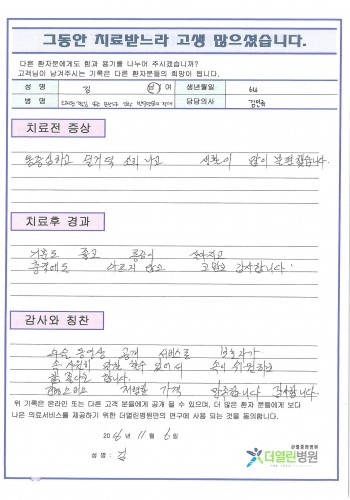 그동안 치료받느라 고생 많으셨습니다.
다른 환자분에게도 힘과 용기를 나누어 주시겠습니까?
고객님이 남겨주시는 기록은 다른 환자분들의 희망이 됩니다.
성 명 김 남 여 생년월일 64
병 명 담당의사
치료전 증상
통증심하고 덜거덕 소리나고 생활이 많이 불편했습니다.
치료후 경과
좋고 통증이 사라지고
아프지 않고 고맙고 감사합니다
감사와 칭찬
수술 동영상 공개 서비스로 보호자가
속 시원히 수 있어서 속이 시원하고
합니다.
저렴한 가격 만족합니다 감사합니다.
위 기록은 온라인 또는 다른 고객 분들에게 공개 될 수 있으며, 더 많은 환자 분들에게 보다
나은 의료서비스를 제공하기 위한 더열린병원만의 연구에 사용 되는 것을 동의합니다.
년 11 월 6 일
성 명 : 김
관절중심병원
더열린병원